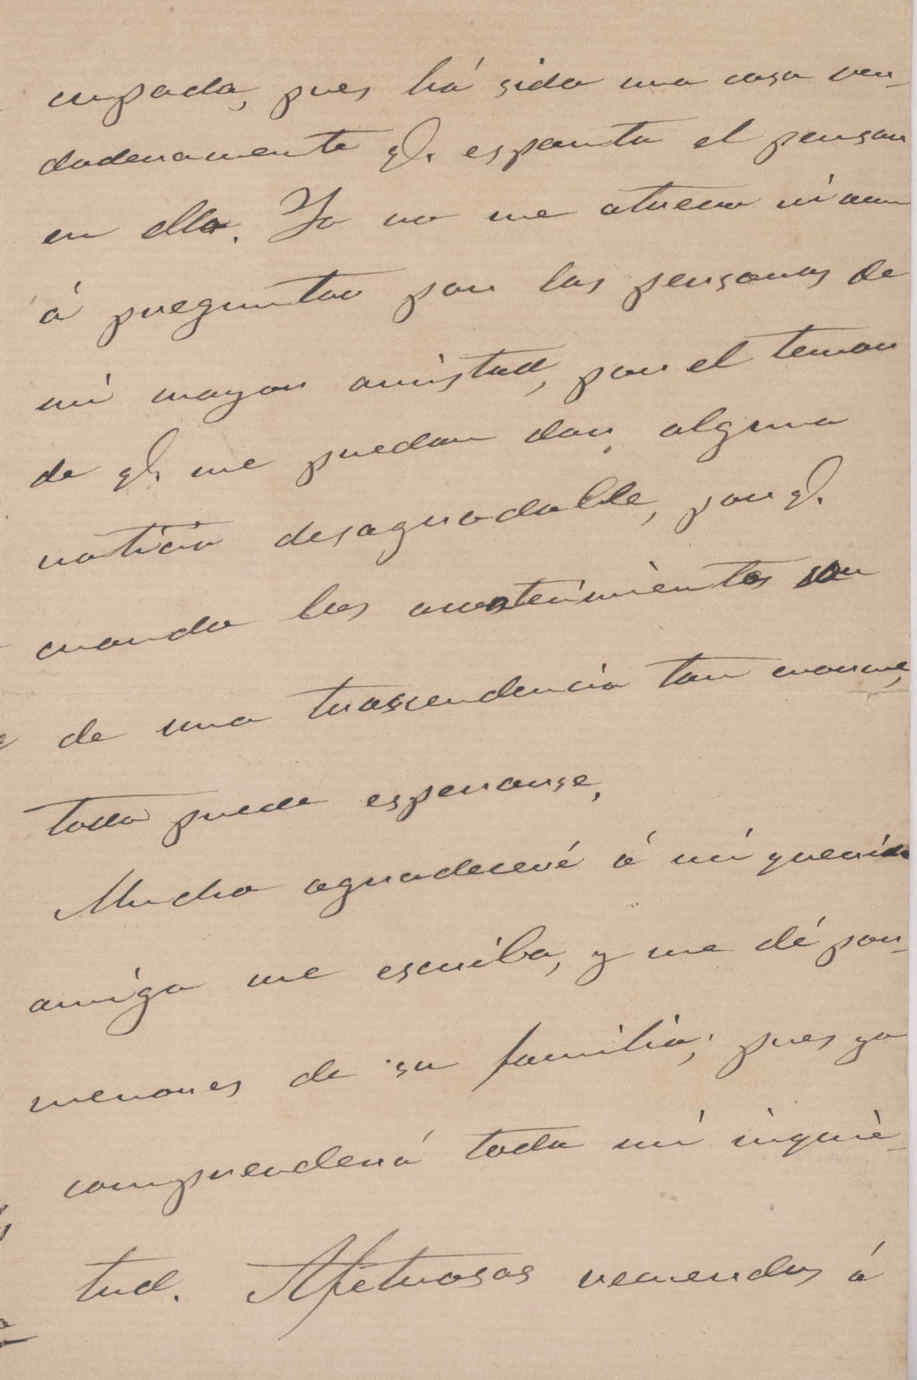 cupada, pues há sido una cosa ver-
daderamente q. espanta el pensar
en ello. Yo no me atrevo ni aun
á preguntar por las personas de
mi mayor amistad, por el temor
de q. me puedan dar, alguna
noticia desagradable, por q.
cuando los acontecimientos son
de una trascendencia tan enorme,
todo puede esperarse.
Mucho agradeceré á mi querida
amiga me escriba, y me dé por-
menores de su familia; pues ya
comprenderá toda mi inquie-
tud. Afetuosos recuerdos á